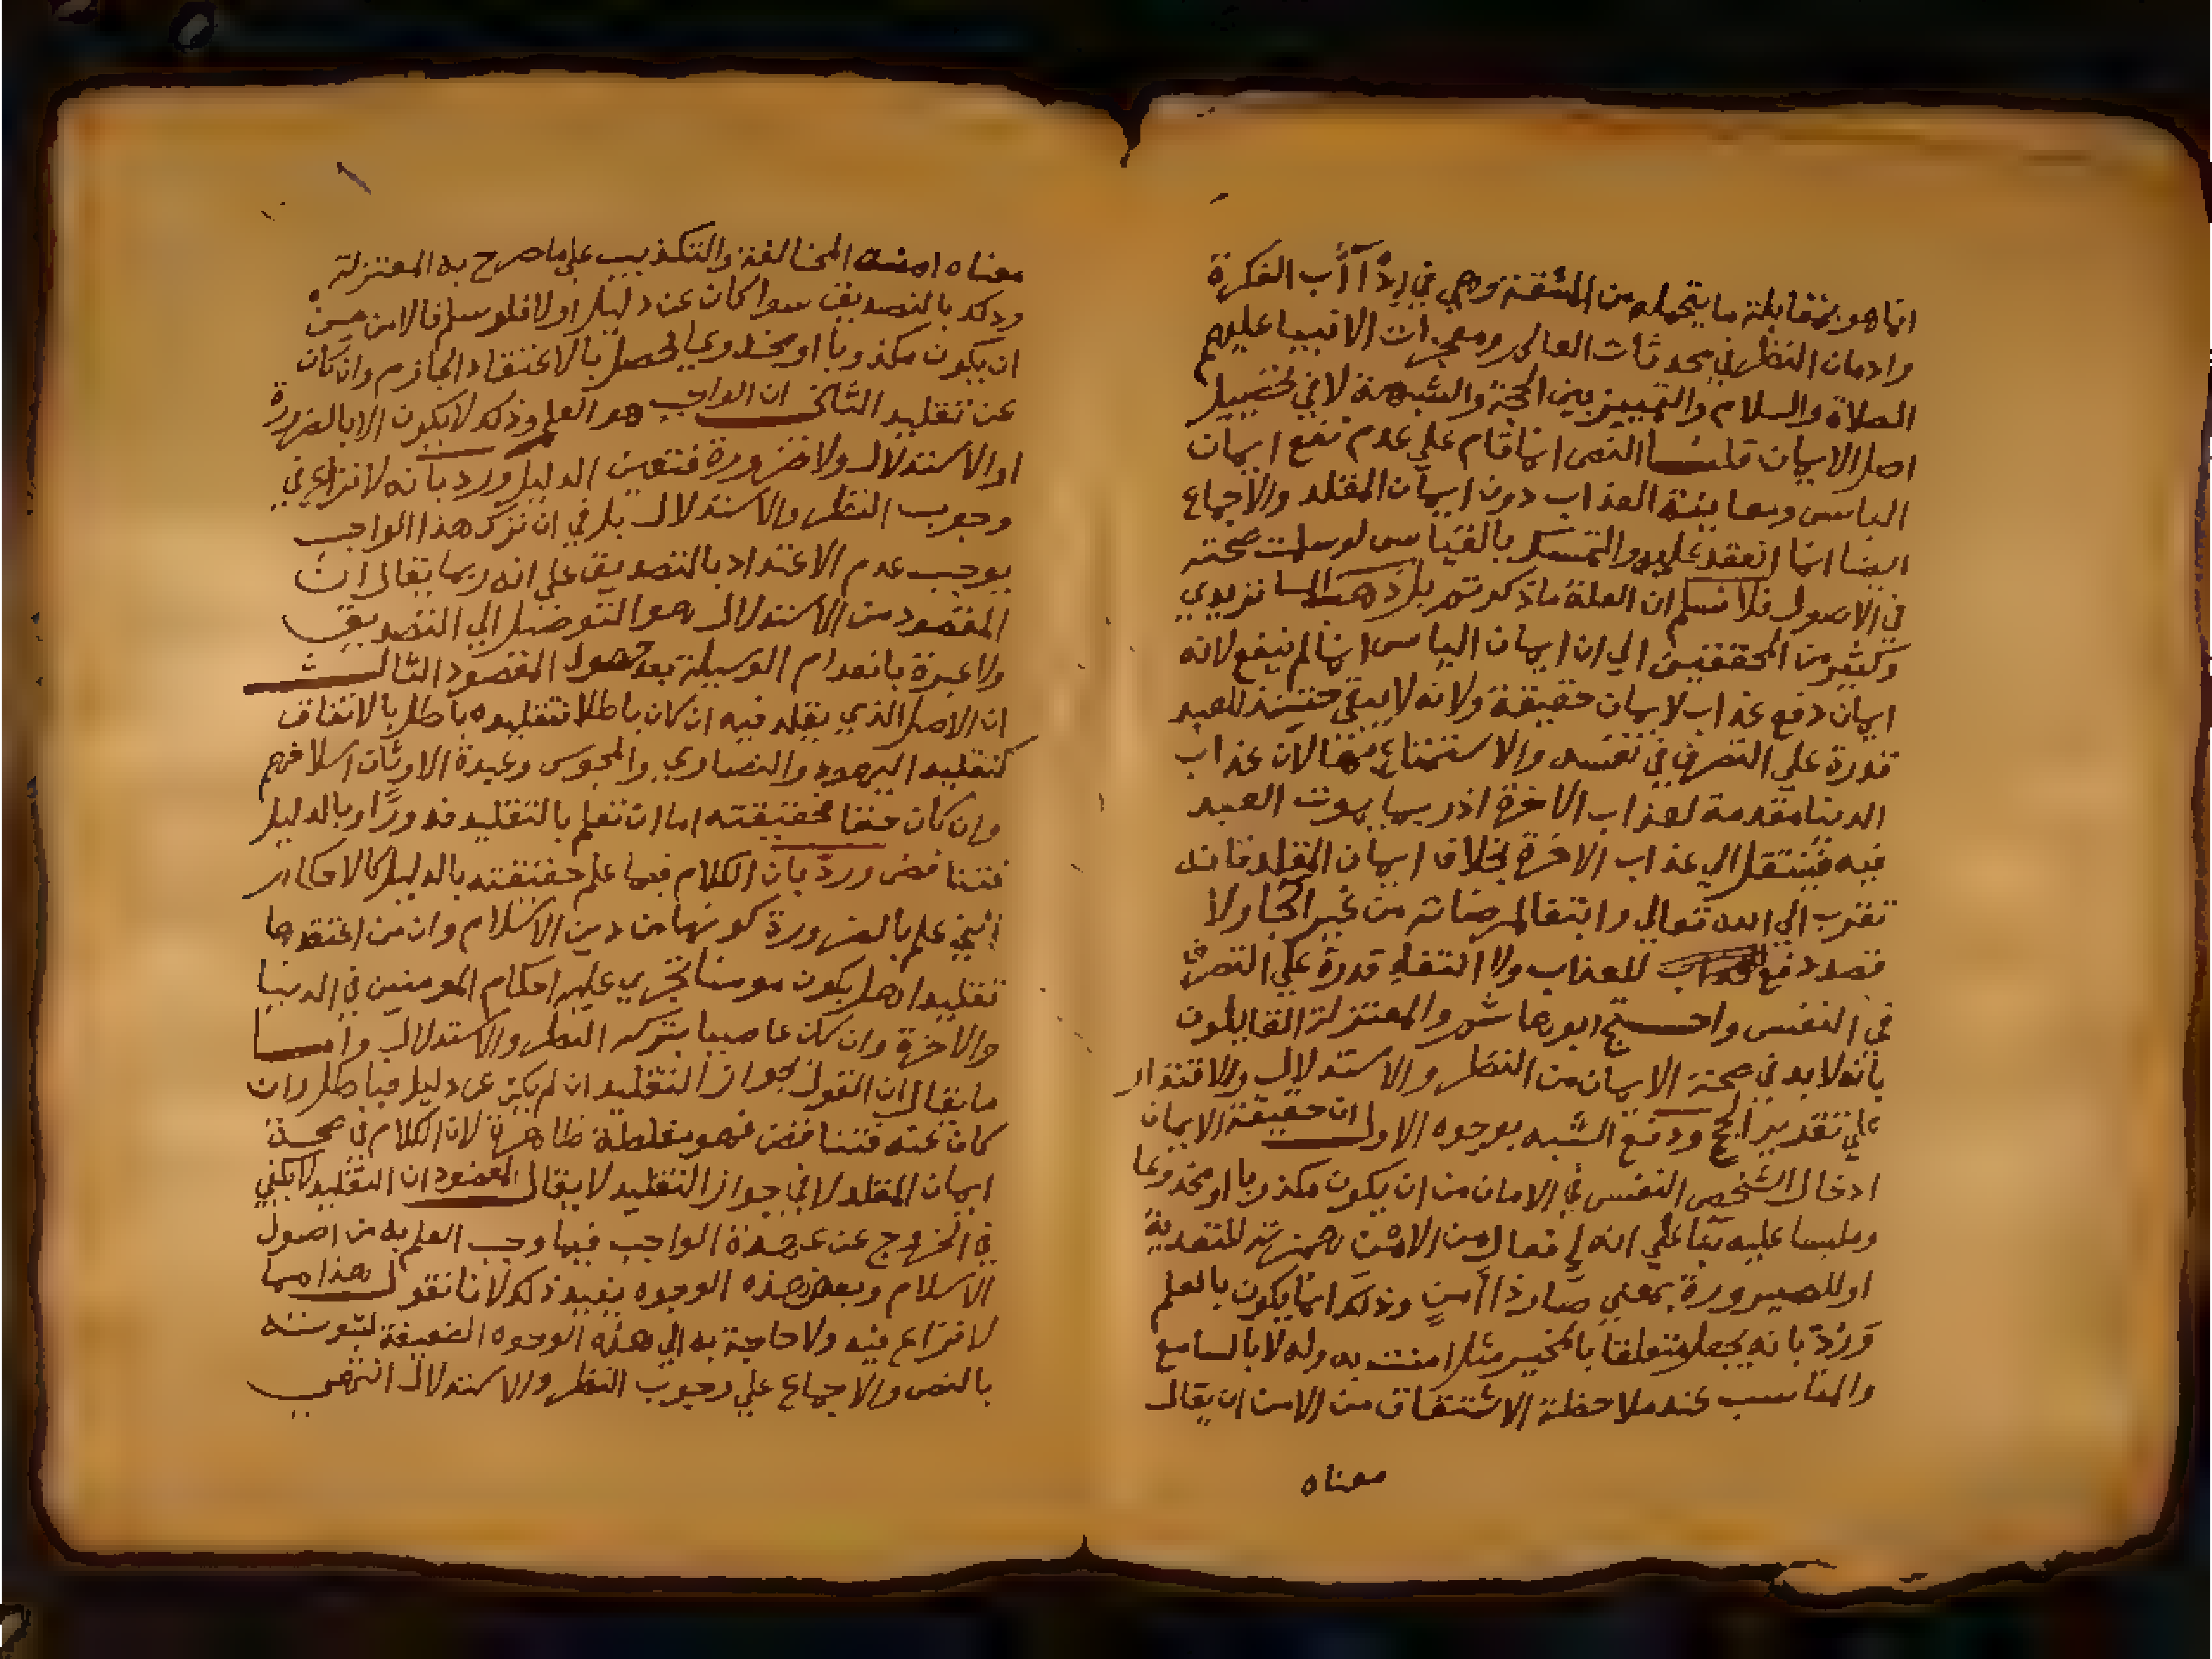 انما هو بمقابلة ما يتحمله من المشقة وهي في إدْآأَب الفكرة
وادمان النظر في محدثات العالم ومعجزات الانبيا عليهم
الصلاة والسلام والتمييز بين الحجة والشبهة لا في تحصيل
اصل الايمان قلنا النص انما قام علي عدم نفع ايمان
الياس ومعاينة العذاب دون ايمان المقلد والاجماع
ايضا انما انعقد عليه والتمسك بالقياس لو سلمت صحته
في الاصول فلا نسلم ان العلة ما ذكرتم بل ذهب الماتريدي
وكثير من المحققين الي ان ايمان الياس انما لم ينفع لانه
ايمان دفع عذاب لا ايمان حقيقة ولانه لا يبقي حينئذ للعبد
قدرة علي التصرف في نفسه والاستمتاع بها لان عذاب
الدنيا مقدمة لعذاب الاخرة اذ ربما يموت العبد
فيه فينتقل الي عذاب الاخرة بخلاف ايمان المقلد فانه
تقرب الي الله تعالي وابتغا لمرضاته من غير الجا ولا
قصد دفع للعذاب ولا انتفاء قدرة علي التصرف
في النفس واحتج ابو هاشم والمعتزلة القايلون
بانه لا بد في صحة الايمان من النظر والاستدلال والاقتدار
علي تقرير الحجج ودفع الشبه بوجوه الاول ان حقيقة الايمان
ادخال الشخص النفس في الامان من ان يكون مكذوبا او مخدوعا
وملبسا عليه بنا علي انه إفعال من الامن همزته للتعدية
او للصيرورة بمعني صار ذا أمنٍ وذلك انما يكون بالعلم
وَرُدَّ بانه يجعل متعلقا بالمخبر مثل امنت به وله لا بالسامع
والمناسب عند ملاحظة الاشتقاق من الامن ان يقال
معناه
معناه امنه المخالفة والتكذيب علي ما صرح به المعتزلة
وذلك بالتصديق سوا كان عن دليل او لا فلو سلم فالامن من
ان يكون مكذوبا او مخدوعا يحصل بالاعتقاد الجازم وان كان
عن تقليد الثاني ان الواجب هو العلم وذلك لا يكون الا بالضرورة
او الاستدلال ولا ضرورة فتعين الدليل ورد بانه لا نزاع في
وجوب النظر والاستدلال بل في ان ترك هذا الواجب
يوجب عدم الاعتداد بالتصديق علي انه ربما يقال ان
المقصود من الاستدلال هو التوصل الي التصديق
ولا عبرة بانعدام الوسيلة بعد حصول المقصود الثالث
ان الاصل الذي يقلد فيه ان كان باطلا فتقليده باطل بالاتفاق
كتقليد اليهود والنصاري والمجوس وعبدة الاوثان اسلافهم
وان كان حقا فحقيقته اما ان تعلم بالتقليد فدورًا او بالدليل
فتناقض وردّ بان الكلام فيما علم حقيقته بالدليل كالاحكام
التي علم بالضرورة كونها من دين الاسلام وان من اعتقدها
تقليدا هل يكون مومنا تجري عليه احكام المومنين في الدنيا
والاخرة وان كان عاصيا بتركه النظر والاستدلال واما
ما يقال ان القول بجواز التقليد ان لم يكن عن دليل فباطل وان
كان عنه فتناقض فهو مغلطة ظاهرة لان الكلام في صحة
ايمان المقلد لا في جواز التقليد لا يقال المقصود ان التقليد لا يكفي
في الخروج عن عهدة الواجب فيما وجب العلم به من اصول
الاسلام وبعض هذه الوجوه يفيد ذلك لانا نقول هذا مما
لا نزاع فيه ولا حاجة به الي هذه الوجوه الضعيفة لثبوته
بالنص والاجماع علي وجوب النظر والاستدلال انتهي